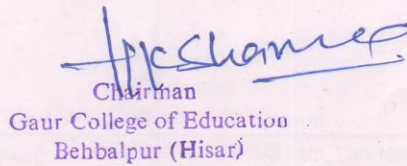 Chairman
Gaur College of Education
Behbalpur (Hisar)